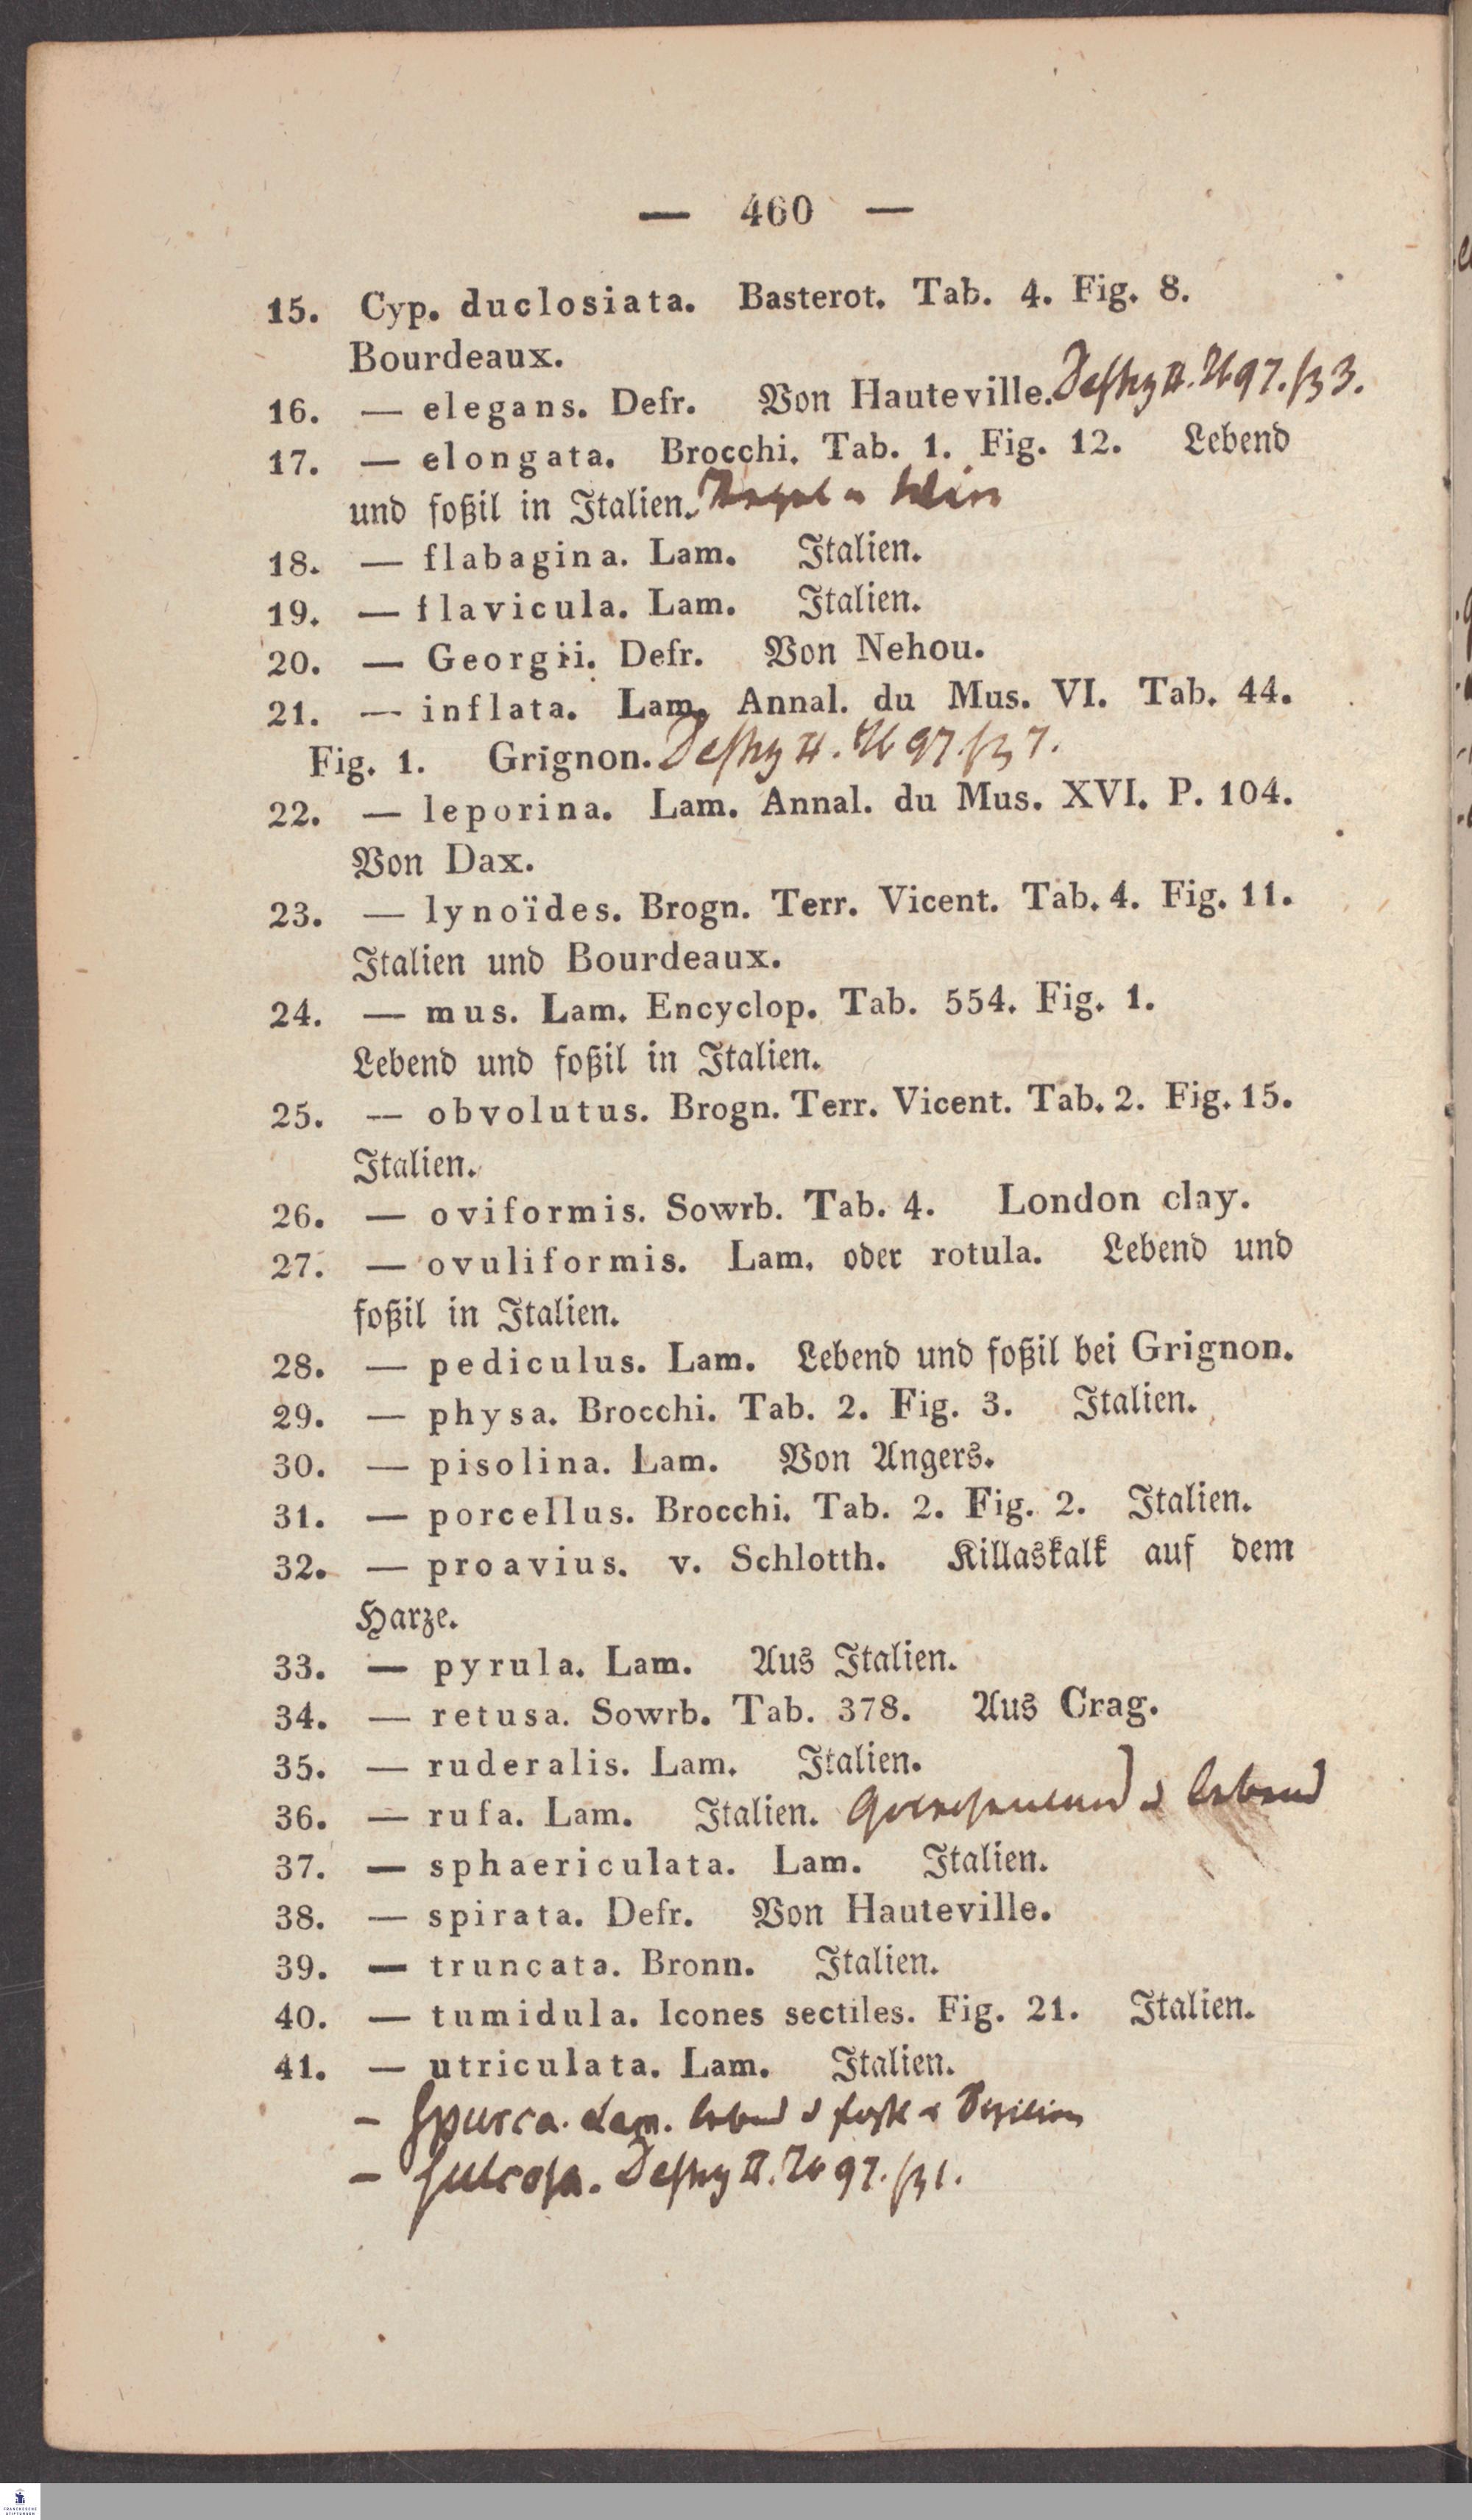 — 460 —
15. Cyp. duclosiata. Basterot. Tab. 4. Fig. 8.
Bourdeaux.
16. — elegans. Defr. Von Hauteville. Deshy II. Tb 97. f 3.
17. — elongata. Brocchi. Tab. 1. Fig. 12. Lebend
und foßil in Italien.
18. — flabagina. Lam. Italien.
19. — flavicula. Lam. Italien.
20. — Georgii. Defr. Von Nehou.
21. — inflata. Lam. Annal. du Mus. VI. Tab. 44.
Fig. 1. Grignon. Deshy II. Tb 97. f 7.
22. — leporina. Lam. Annal. du Mus. XVI. P. 104.
Von Dax.
23. — lynoïdes. Brogn. Terr. Vicent. Tab. 4. Fig. 11.
Italien und Bourdeaux.
24. — mus. Lam. Encyclop. Tab. 554. Fig. 1.
Lebend und foßil in Italien.
25. — obvolutus. Brogn. Terr. Vicent. Tab. 2. Fig. 15.
Italien.
26. — oviformis. Sowrb. Tab. 4. London clay.
27. — ovuliformis. Lam. oder rotula. Lebend und
foßil in Italien.
28. — pediculus. Lam. Lebend und foßil bei Grignon.
29. — physa. Brocchi. Tab. 2. Fig. 3. Italien.
30. — pisolina. Lam. Von Angers.
31. — porcellus. Brocchi. Tab. 2. Fig. 2. Italien.
32. — proavius. v. Schlotth. Killaskalk auf dem
Harze.
33. — pyrula. Lam. Aus Italien.
34. — retusa. Sowrb. Tab. 378. Aus Crag.
35. — ruderalis. Lam. Italien.
36. — rufa. Lam. Italien. lebend
37. — sphaericulata. Lam. Italien.
38. — spirata. Defr. Von Hauteville.
39. — truncata. Bronn. Italien.
40. — tumidula. Icones sectiles. Fig. 21. Italien.
41. — utriculata. Lam. Italien.
— spurca. Lam. lebend
— sulcosa. Deshy II. Tb 97. f 1.
FRANCKESCHE
STIFTUNGEN